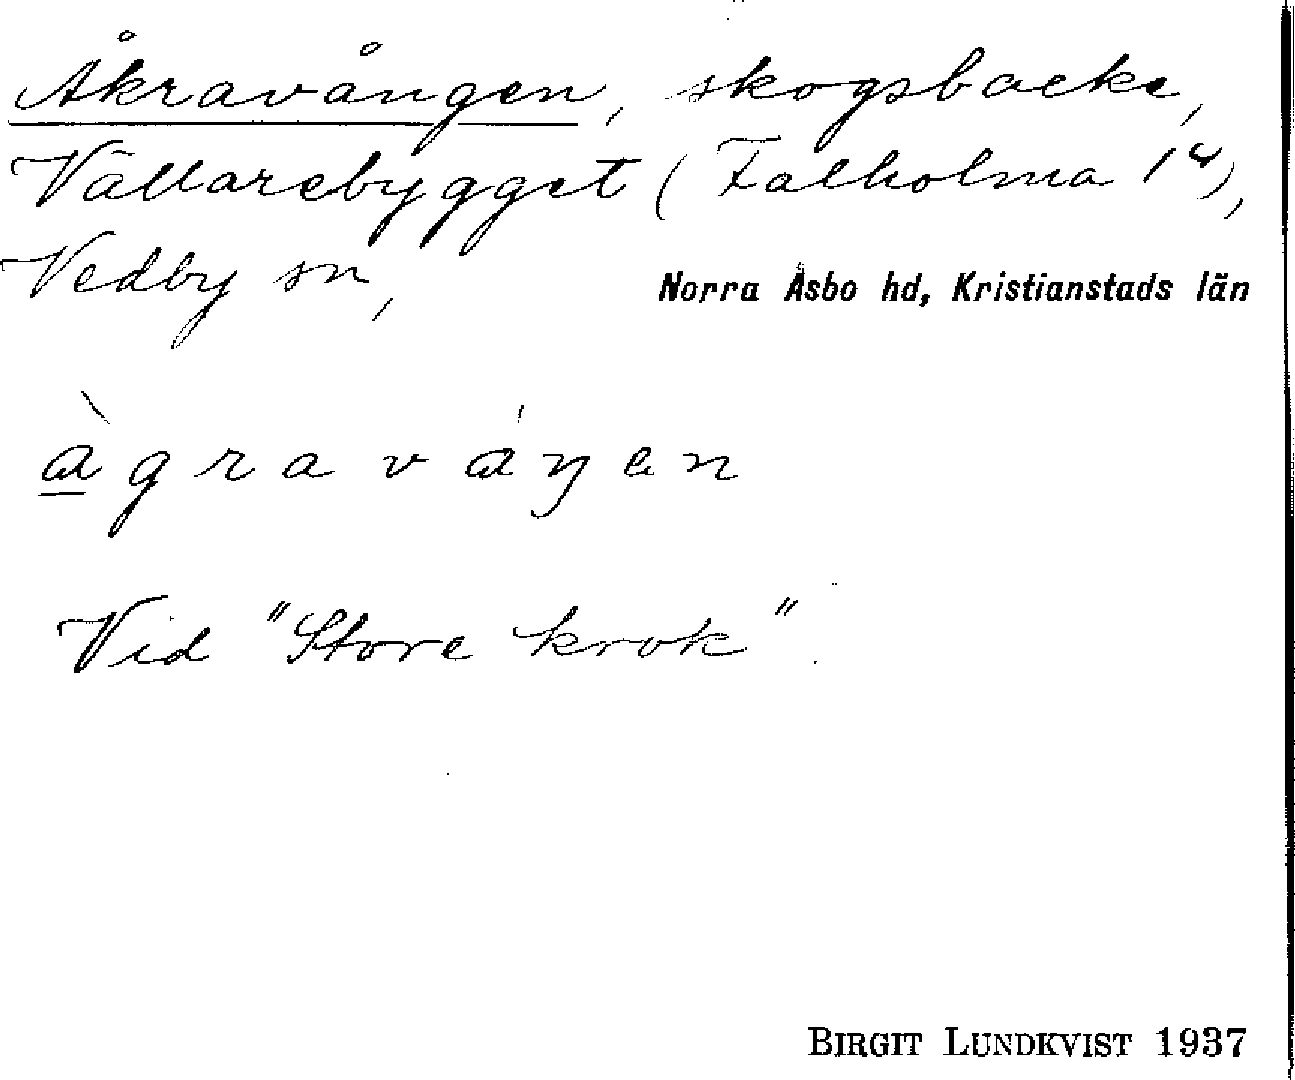 Åkravången, skogsbacke,
Vällarebygget (Falholma 1⁴),
Vedby sn,
Norra Åsbo hd, Kristianstads län
àgraváŋen
Vid "Store krok".
BIRGIT LUNDKVIST 1937